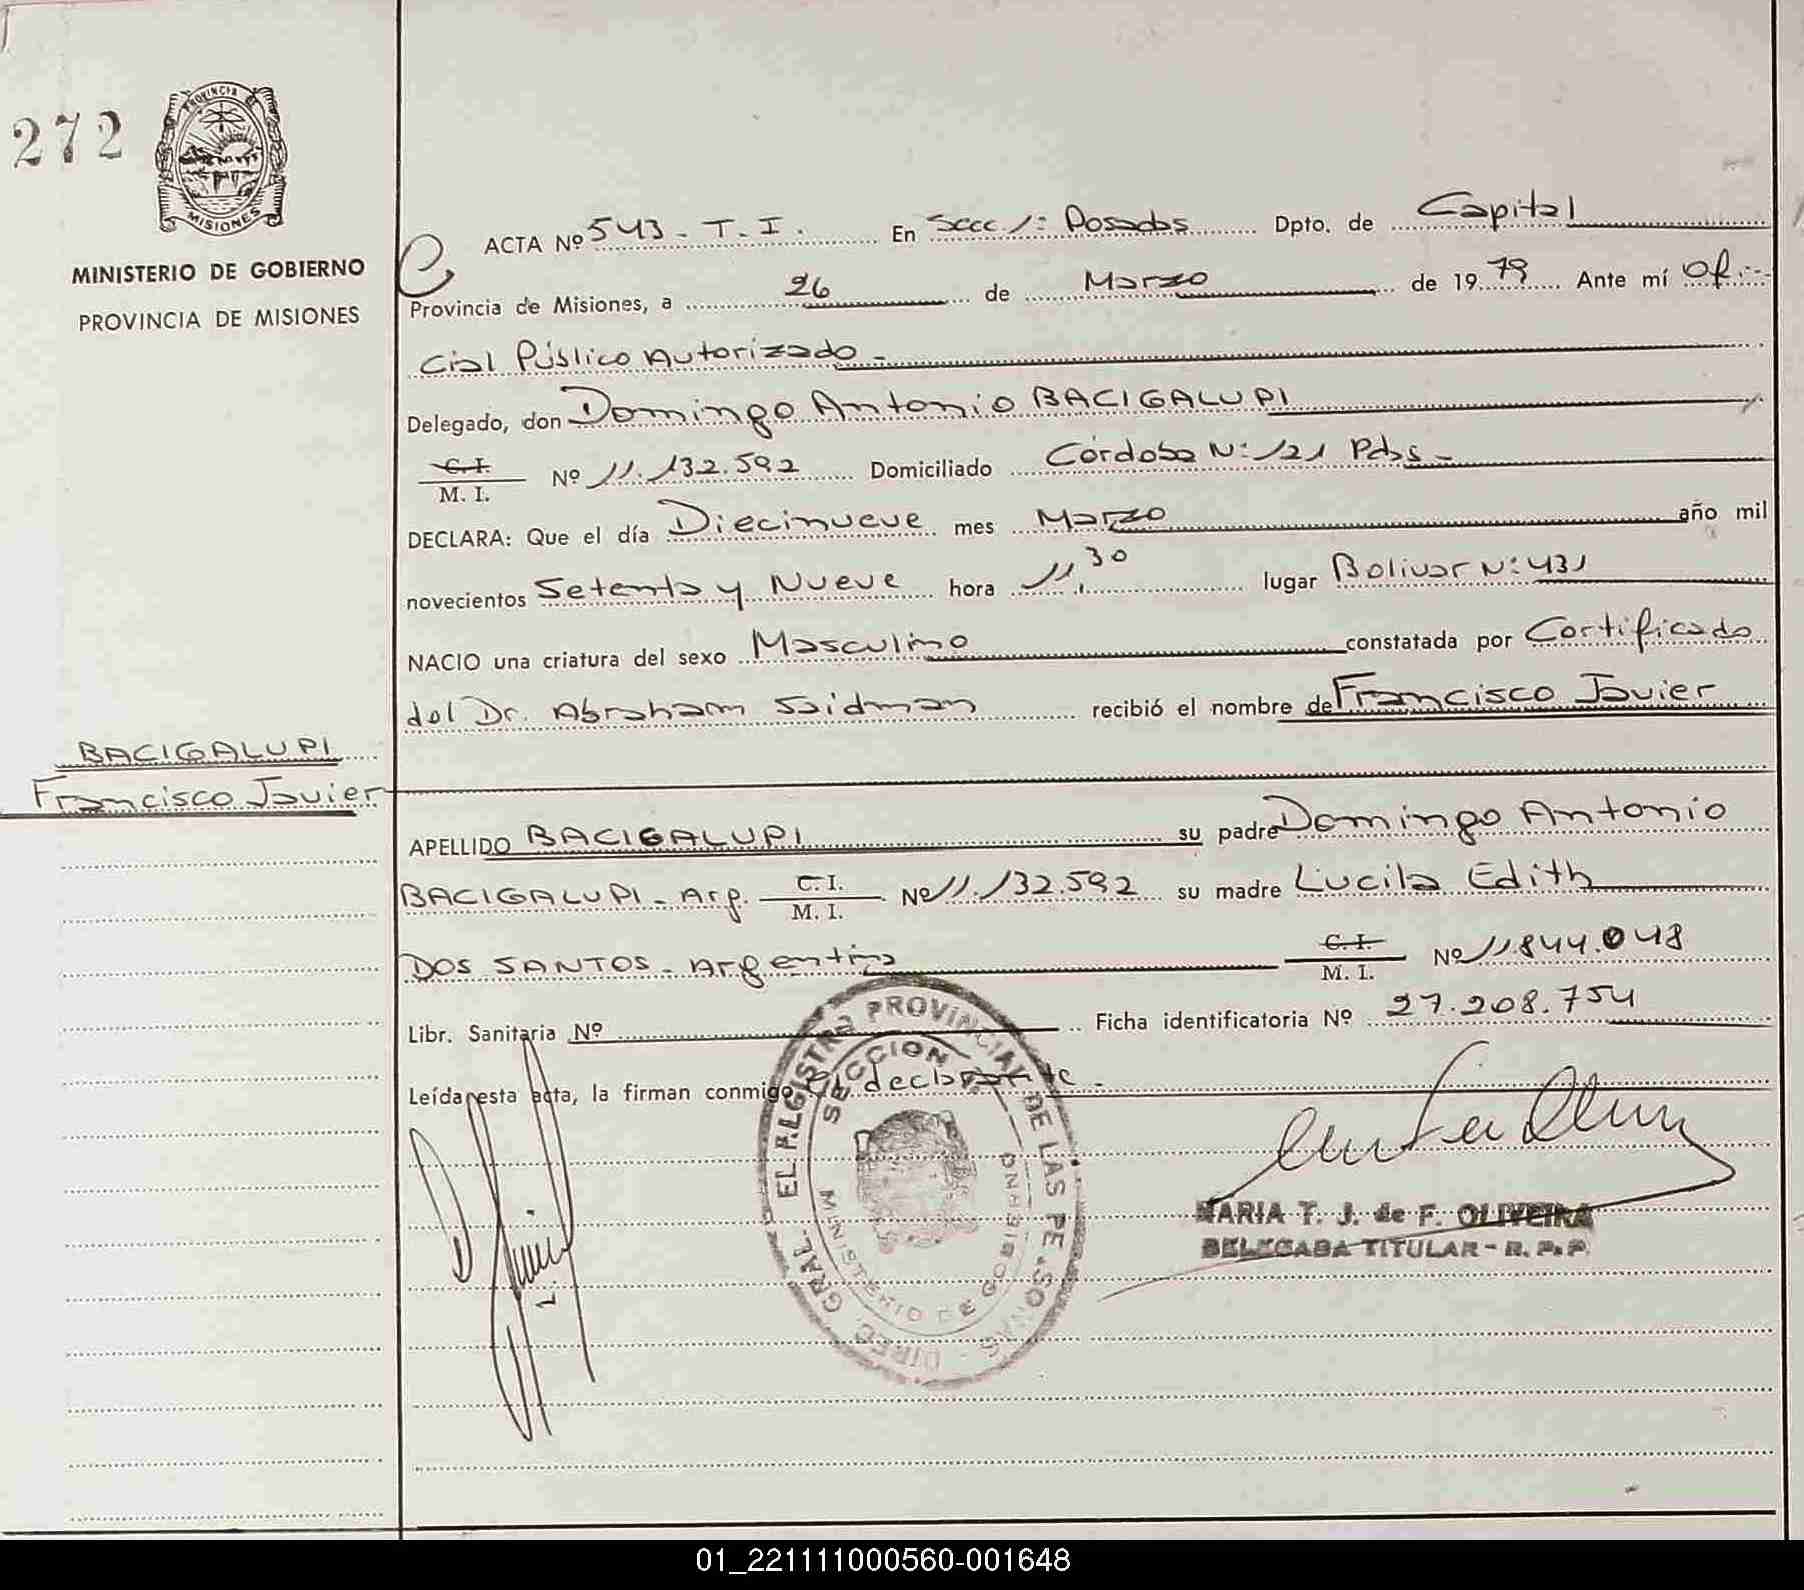 272
PROVINCIA DE
MISIONES
MINISTERIO DE GOBIERNO
PROVINCIA DE MISIONES
BACIGALUPI
Francisco Javier
ACTA Nº 543 - T. I. En Secc 1: Posadas Dpto. de Capital
Provincia de Misiones, a 26 de Marzo de 1979 Ante mí Ofi-
cial Público Autorizado -
Delegado, don Domingo Antonio BACIGALUPI
C.I.
M. I. Nº 11.132.592 Domiciliado Córdoba Nº: 121 Pdas -
DECLARA: Que el día Diecinueve mes Marzo año mil
novecientos Setenta y Nueve hora 11,30 lugar Bolivar Nº: 431
NACIO una criatura del sexo Masculino constatada por Certificado
del Dr. Abraham Saidman recibió el nombre de Francisco Javier
APELLIDO BACIGALUPI su padre Domingo Antonio
BACIGALUPI - Arg. C.I. M. I. Nº 11.132.592 su madre Lucila Edith
DOS SANTOS - Argentina C.I. M. I. Nº 11.844.048
Libr. Sanitaria Nº Ficha identificatoria Nº 27.208.754
Leída esta acta, la firman conmigo el declarante -
DIREC. GRAL. EL REGISTRO PROVINCIAL DE LAS PERSONAS
SECCION
MINISTERIO DE GOBIERNO
MARIA T. J. de F. OLIVEIRA
DELEGADA TITULAR - R. P. P.
01_221111000560-001648